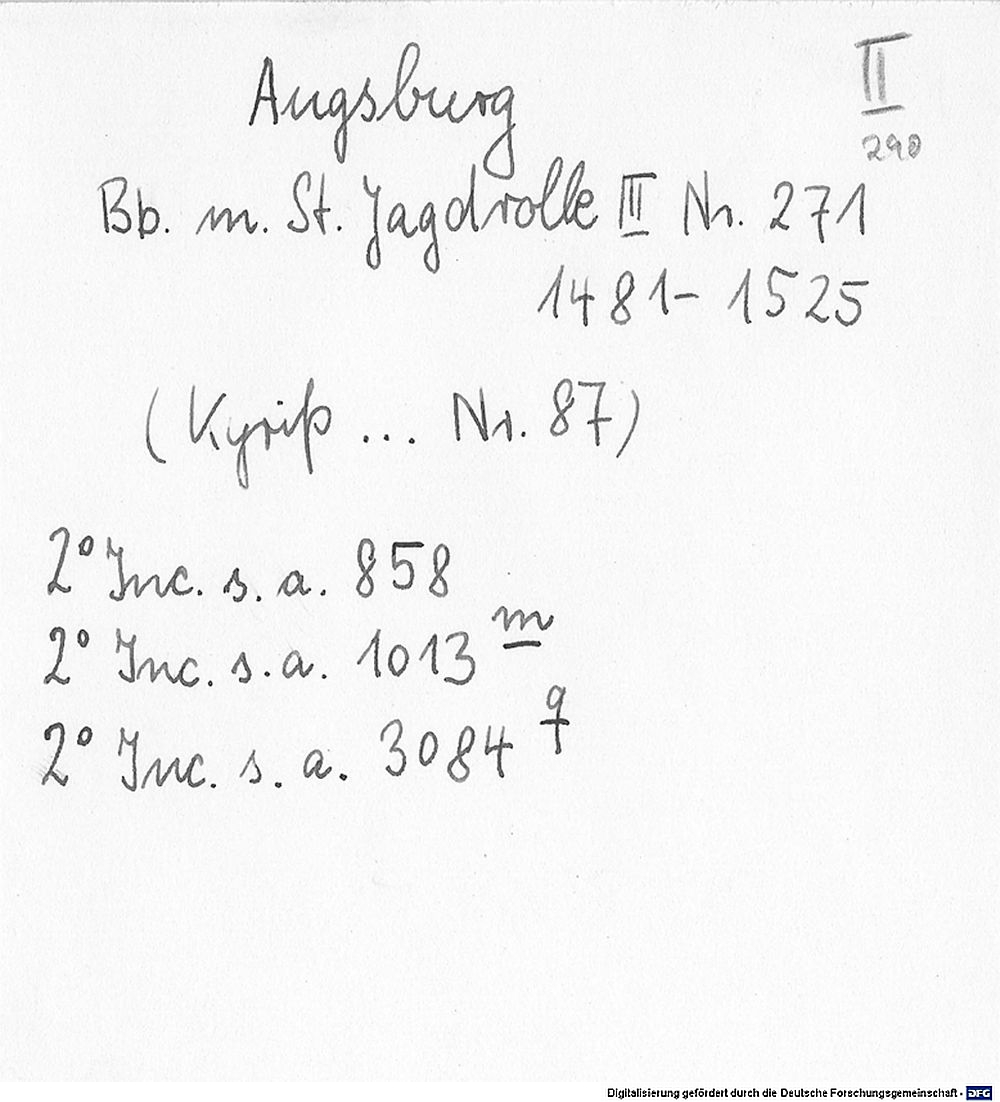 Augsburg
II
290
Bb. m. St. Jagdrolle III Nr. 271
1481- 1525
(Kyriß ... Nr. 87)
2° Inc. s. a. 858
2° Inc. s. a. 1013 m
2° Inc. s. a. 3084 q
Digitalisierung gefördert durch die Deutsche Forschungsgemeinschaft - DFG